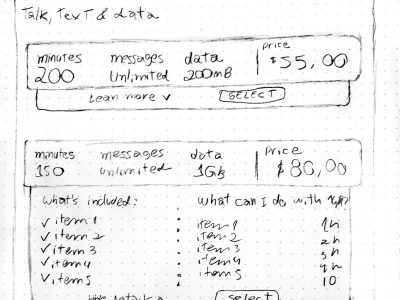 Talk, Text & data
minutes messages data Price
200 Unlimited 200MB $55,00
Lean more v SELECT
minutes messages data Price
150 unlimited 1Gb $80,00
what's included: what can I do with 1gb?
✓ item 1 : item 1 1h
✓ item 2 item 2 2h
✓ item 3 : item 3 3h
✓ item 4 item 4 4h
✓ item 5 : item 5 10
select